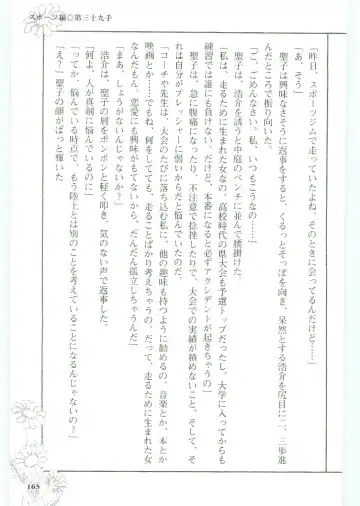 スポーツ編◎第三十九手
「昨日、スポーツジムで走っていたよね。そのときに会ってるんだけど……」
「あ、そう」
聖子は興味なさそうに返事をすると、くるっとそっぽを向き、呆然とする浩介を尻目に二、三歩進
んだところで振り向いた。
「ご、ごめんなさい。私、いつもこうなの……」
浩介は、聖子を誘うと中庭のベンチに並んで腰掛けた。
「私は、走るために生まれた女なの。高校時代の県大会も予選トップだったし、大学に入ってからも
練習では誰にも負けない。だけど、本番になると必ずアクシデントが起きちゃうの」
聖子は、急に腹痛になったり、不注意で捻挫したりで、大会での実績が積めないこと、そして、そ
れは自分がプレッシャーに弱いからだと悩んでいたのだ。
「コーチや先生は、大会のたびに落ち込む私に、他の趣味も持つように勧めるの。音楽とか、本とか
映画とか……でもね、何をしてても、走ることばかり考えちゃうの。だって、走るために生まれた女
なんだもん。恋愛にも興味がもてないから、だんだん孤立しちゃうんだ」
「まあ、しょうがないんじゃないか?」
浩介は、聖子の肩をポンポンと軽く叩き、気のない声で返事した。
「何よ、人が真剣に悩んでいるのに」
「ってか、悩んでいる時点で、もう陸上とは別のことを考えていることになるんじゃないの?」
「え?」聖子の顔がぱっと輝いた
165